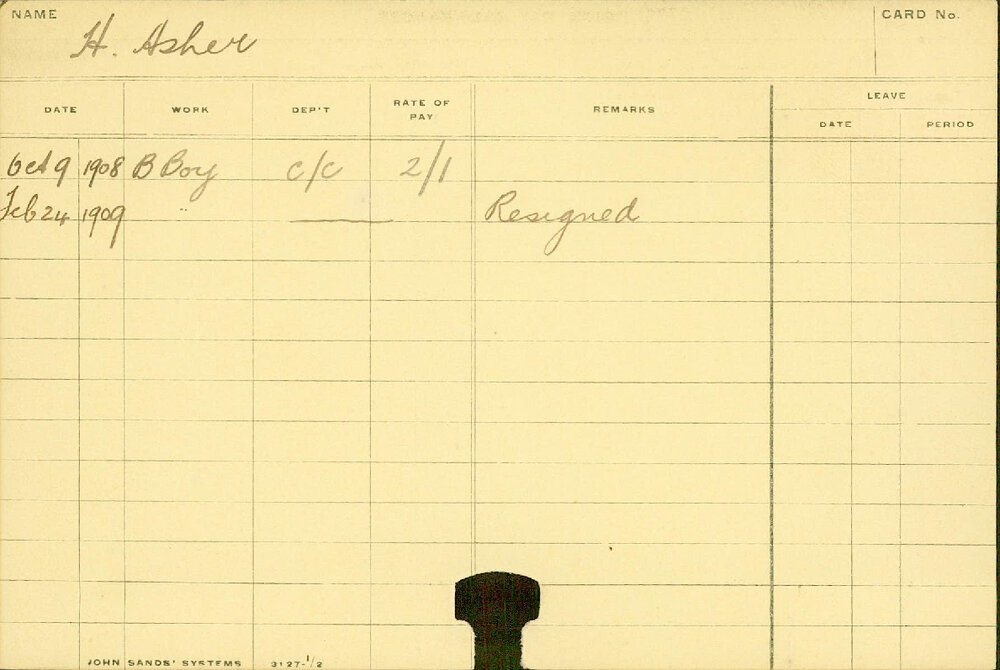 NAME H. Asher CARD No.
DATE WORK DEP'T RATE OF PAY REMARKS LEAVE
DATE PERIOD
Oct 9 1908 B Boy c/c 2/1
Feb 24 1909 " Resigned
JOHN SANDS' SYSTEMS 3127-1/2